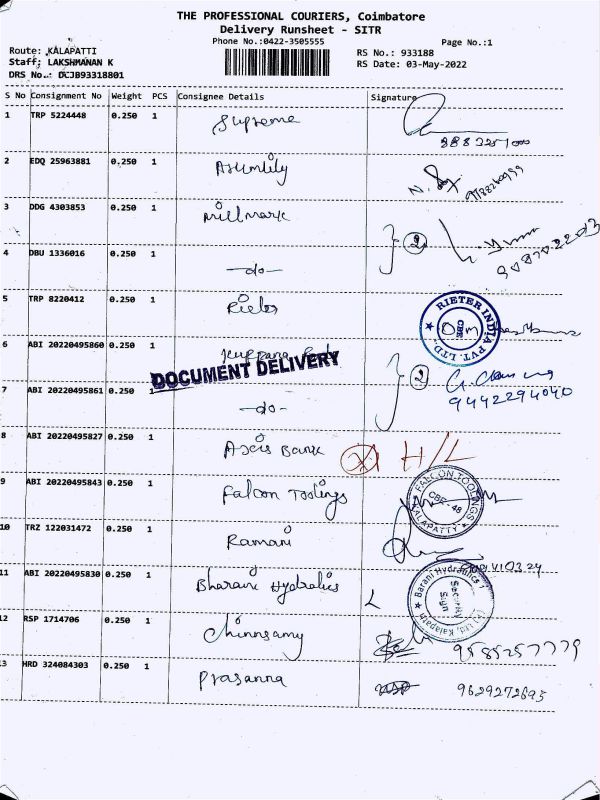 THE PROFESSIONAL COURIERS, Coimbatore
Delivery Runsheet - SITR
Phone No.:0422-3505555
Page No.:1
Route: KALAPATTI
RS No.: 933188
Staff: LAKSHMANAN K
RS Date: 03-May-2022
DRS No.: DCJB93318801
S No Consignment No Weight PCS Consignee Details Signature
1 TRP 5224448 0.250 1 Supreme
2 EDQ 25963881 0.250 1
3 DDG 4303853 0.250 1 Millmark
} 2
4 DBU 1336016 0.250 1 -do-
5 TRP 8220412 0.250 1 Rieter
RIETER INDIA PVT. LTD. CBE
6 ABI 20220495860 0.250 1
DOCUMENT DELIVERY
} 2
9442294040
7 ABI 20220495861 0.250 1 -do-
8 ABI 20220495827 0.250 1 Axis Bank H/L
9 ABI 20220495843 0.250 1 Falcon Toolings
FALCON TOOLINGS CBE - 48 KALAPATTY
10 TRZ 122031472 0.250 1 Ramani
11 ABI 20220495830 0.250 1 Bharani Hydralics
Barani Hydraulics I (P) Ltd, Kalapatti Security Sign
12 RSP 1714706 0.250 1 Chinnsamy 9585257779
13 HRD 324084303 0.250 1 Prasanna 9629272695